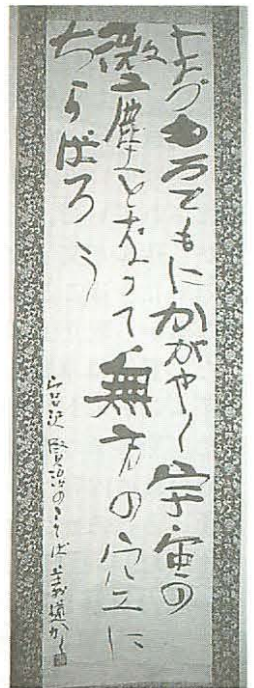 まづもろともにかがやく宇宙の
微塵となって無方の空に
ちらばろう
宮沢賢治のことば 義道かく